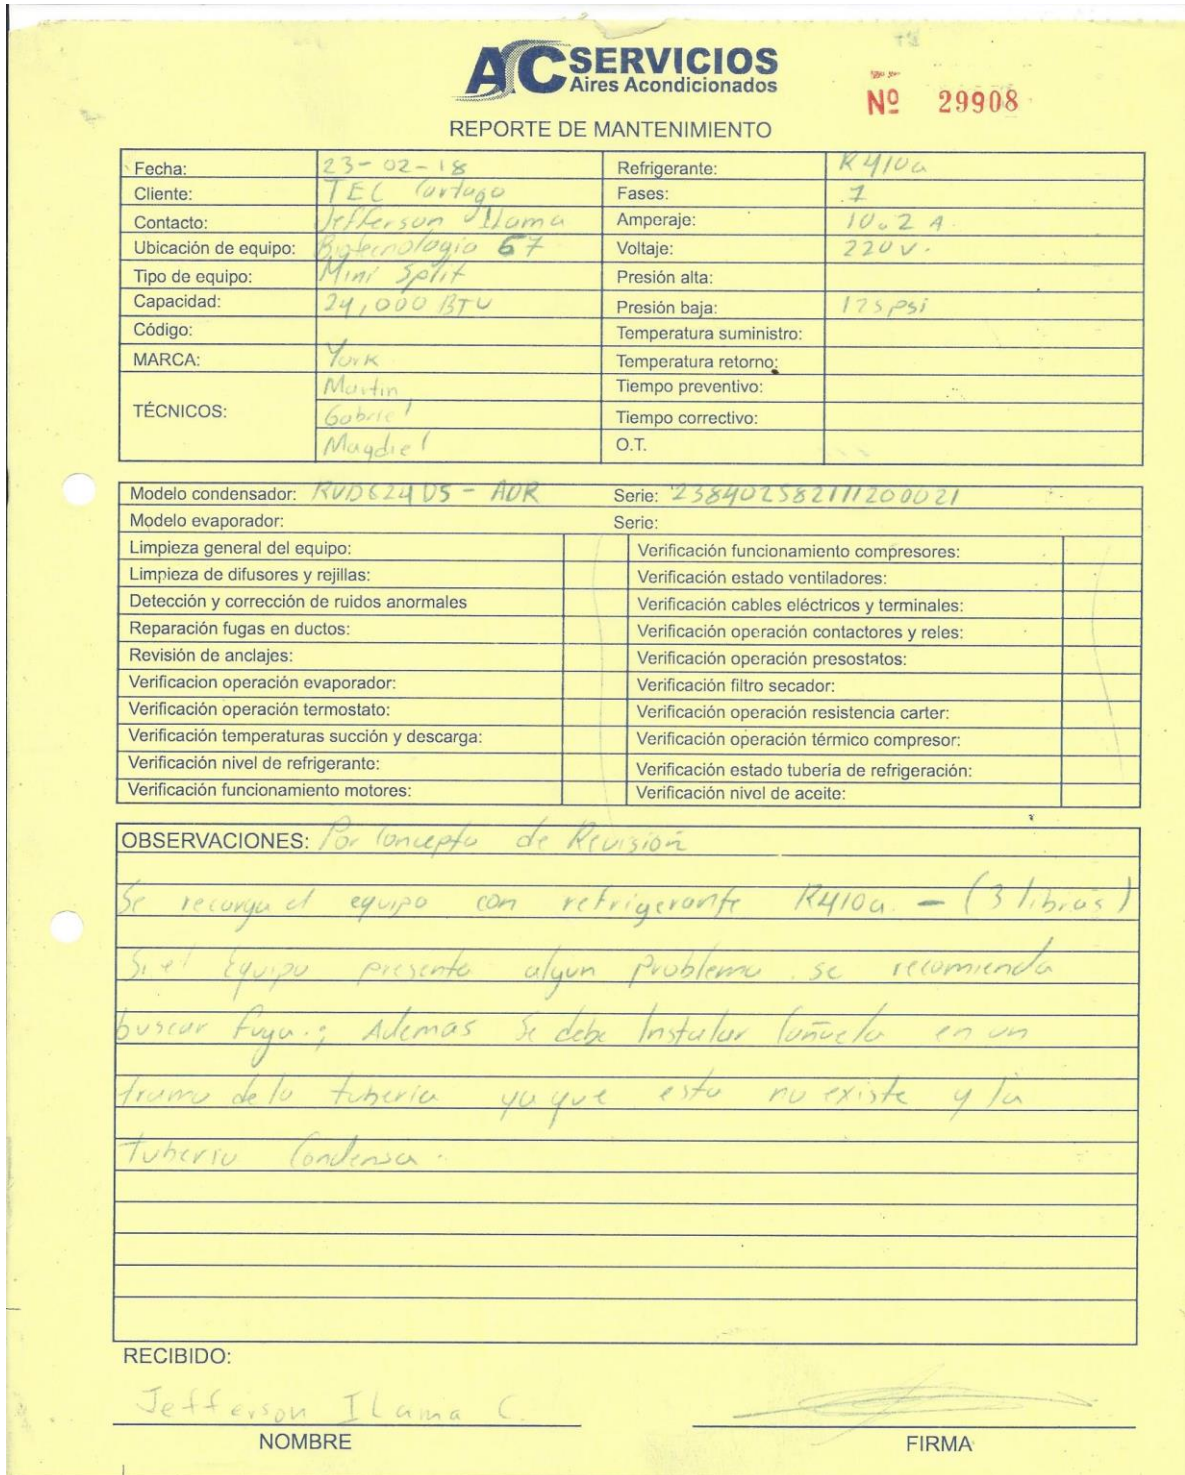 AC SERVICIOS
Aires Acondicionados
Nº 29908
REPORTE DE MANTENIMIENTO
Fecha: 23-02-18 Refrigerante: R410a
Cliente: TEC Cartago Fases: 1
Contacto: Jefferson Ilama Amperaje: 10.2 A.
Ubicación de equipo: Biotecnologia 67 Voltaje: 220v.
Tipo de equipo: Mini Split Presión alta:
Capacidad: 24,000 BTU Presión baja: 125psi
Código: Temperatura suministro:
MARCA: York Temperatura retorno:
TÉCNICOS: Martin Tiempo preventivo:
Gabriel Tiempo correctivo:
Magdiel O.T.
Modelo condensador: Serie: 238402582111200021
Modelo evaporador: Serie:
Limpieza general del equipo: Verificación funcionamiento compresores:
Limpieza de difusores y rejillas: Verificación estado ventiladores:
Detección y corrección de ruidos anormales Verificación cables eléctricos y terminales:
Reparación fugas en ductos: Verificación operación contactores y reles:
Revisión de anclajes: Verificación operación presostatos:
Verificacion operación evaporador: Verificación filtro secador:
Verificación operación termostato: Verificación operación resistencia carter:
Verificación temperaturas succión y descarga: Verificación operación térmico compresor:
Verificación nivel de refrigerante: Verificación estado tubería de refrigeración:
Verificación funcionamiento motores: Verificación nivel de aceite:
OBSERVACIONES: Por Concepto de Revisión
Se recarga el equipo con refrigerante R410a - (3 libras)
Si el Equipo presenta algun problema se recomienda
buscar fuga.; Ademas Se debe Instalar Cañuela en un
tramo de la tuberia ya que esta no existe y la
tuberia Condensa.
RECIBIDO:
Jefferson Ilama C.
NOMBRE FIRMA